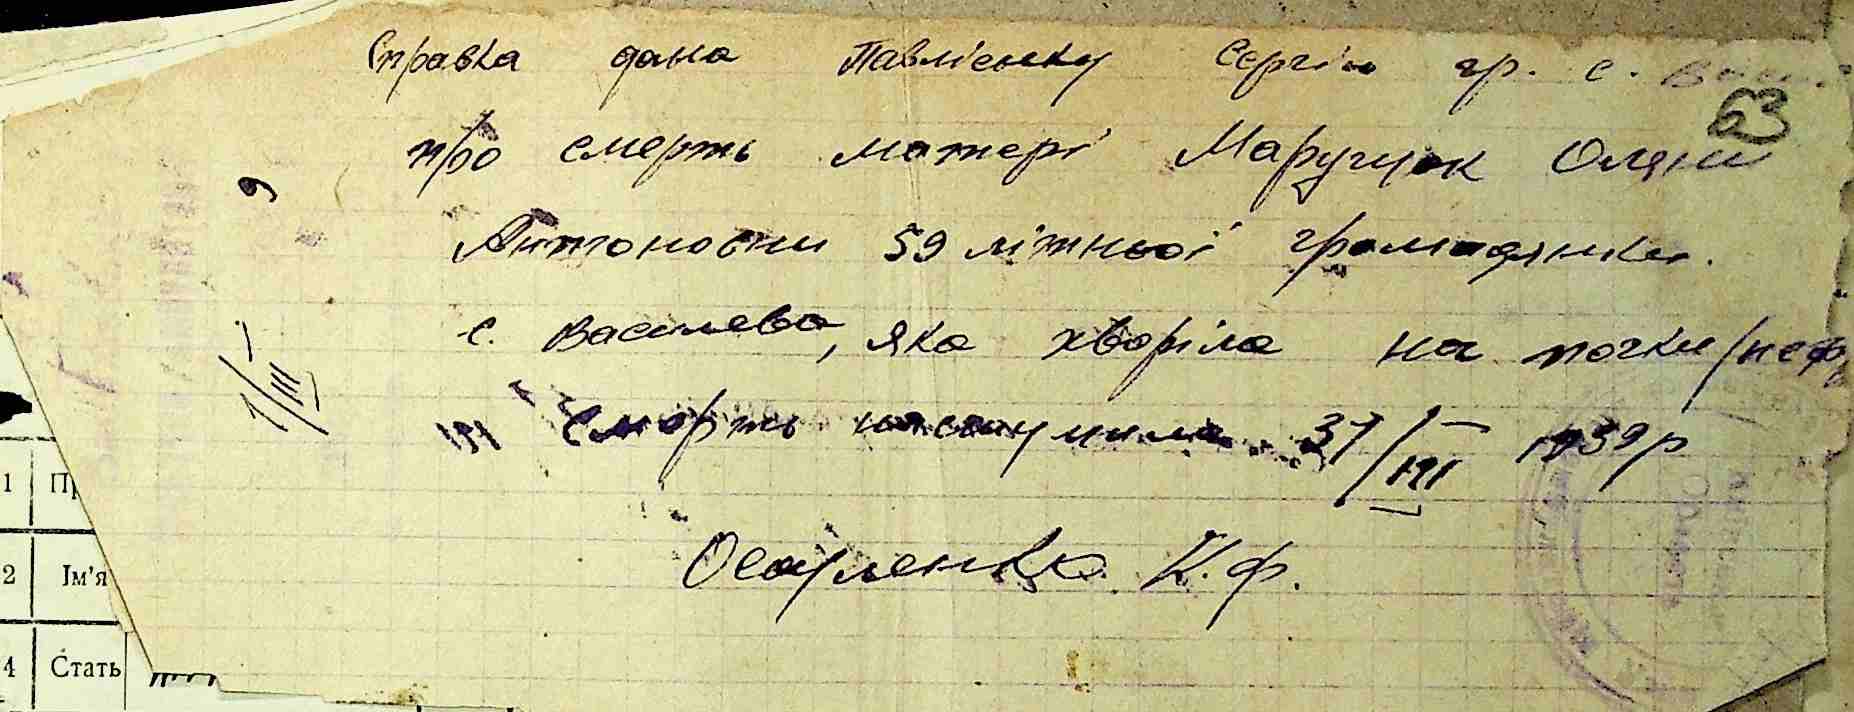 Справка дана Павлієнку Сергію гр. с.
63
про смерть матері Маругчак Оляни
Антоновни 59 літньої громадянки.
с. Василева, яка хворіла на почки /неф
Смерть наступила 31/III 1939р
1/III
Осауленко К.Ф.
1 Пр
2 Ім'я
4 Стать